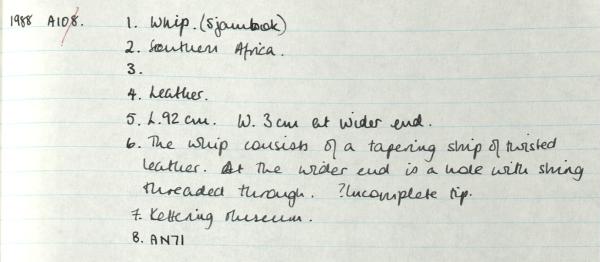 1988 A108. 1. Whip. (Sjambok)
2. Southern Africa.
3.
4. Leather.
5. L. 92 cm. W. 3 cm at wider end.
6. The whip consists of a tapering strip of twisted
leather. At the wider end is a hole with string
threaded through. ?Incomplete tip.
7. Kettering Museum.
8. AN71